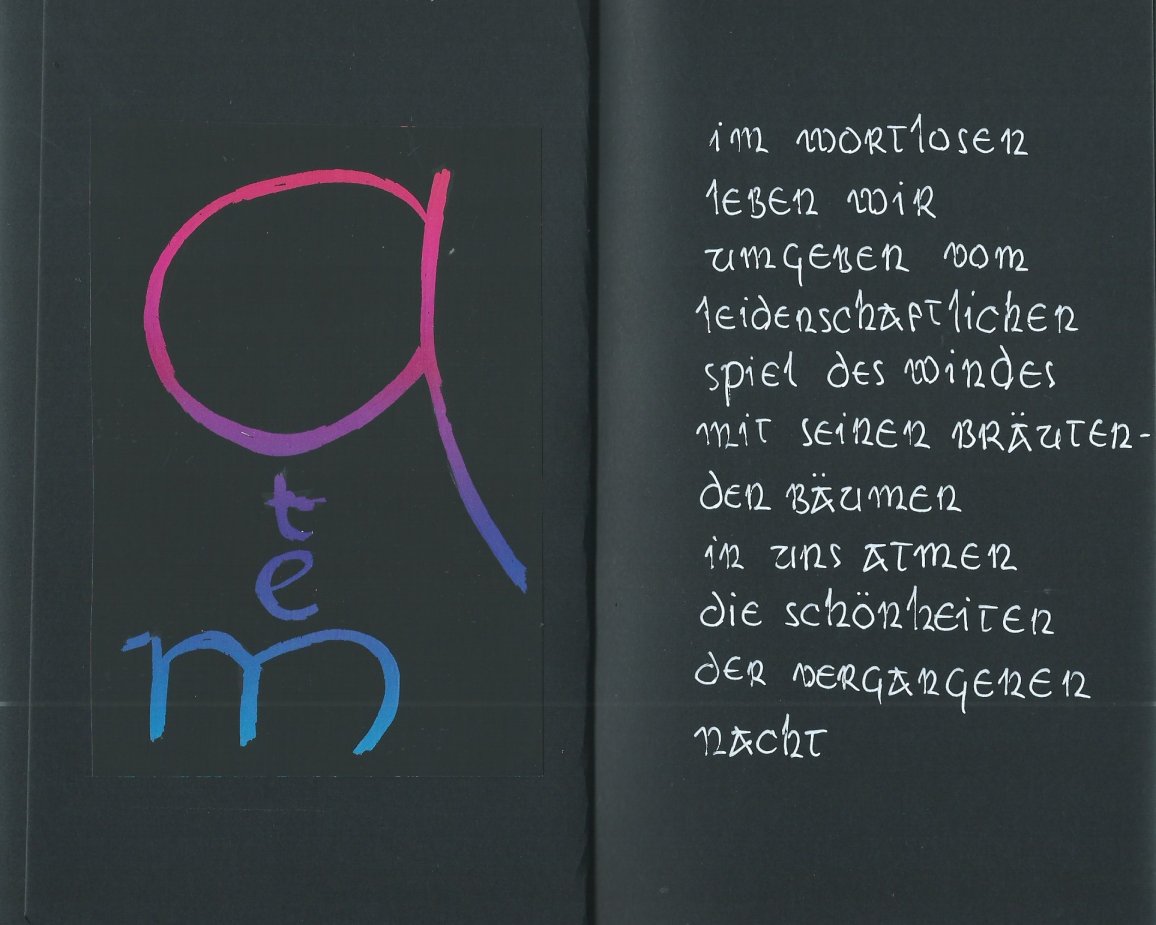 atem
im wortlosen
leben wir
umgeben vom
leidenschaftlichen
spiel des windes
mit seinen bräuten-
den bäumen
in uns atmen
die schönheiten
der vergangenen
nacht